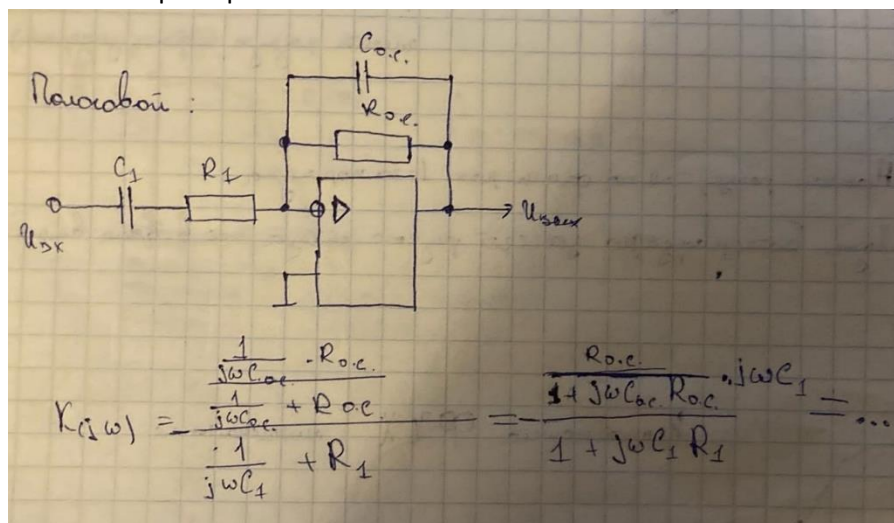 Полосовой :
Cо.с.
Rо.с.
C1 R1
Uвх
Uвых
K(jω) = - (1/(jωCо.с.) · Rо.с.)/(1/(jωCо.с.) + Rо.с.) / (1/(jωC1) + R1) = - (Rо.с./(1 + jωCо.с. Rо.с.) · jωC1) / (1 + jωC1 R1) = ...